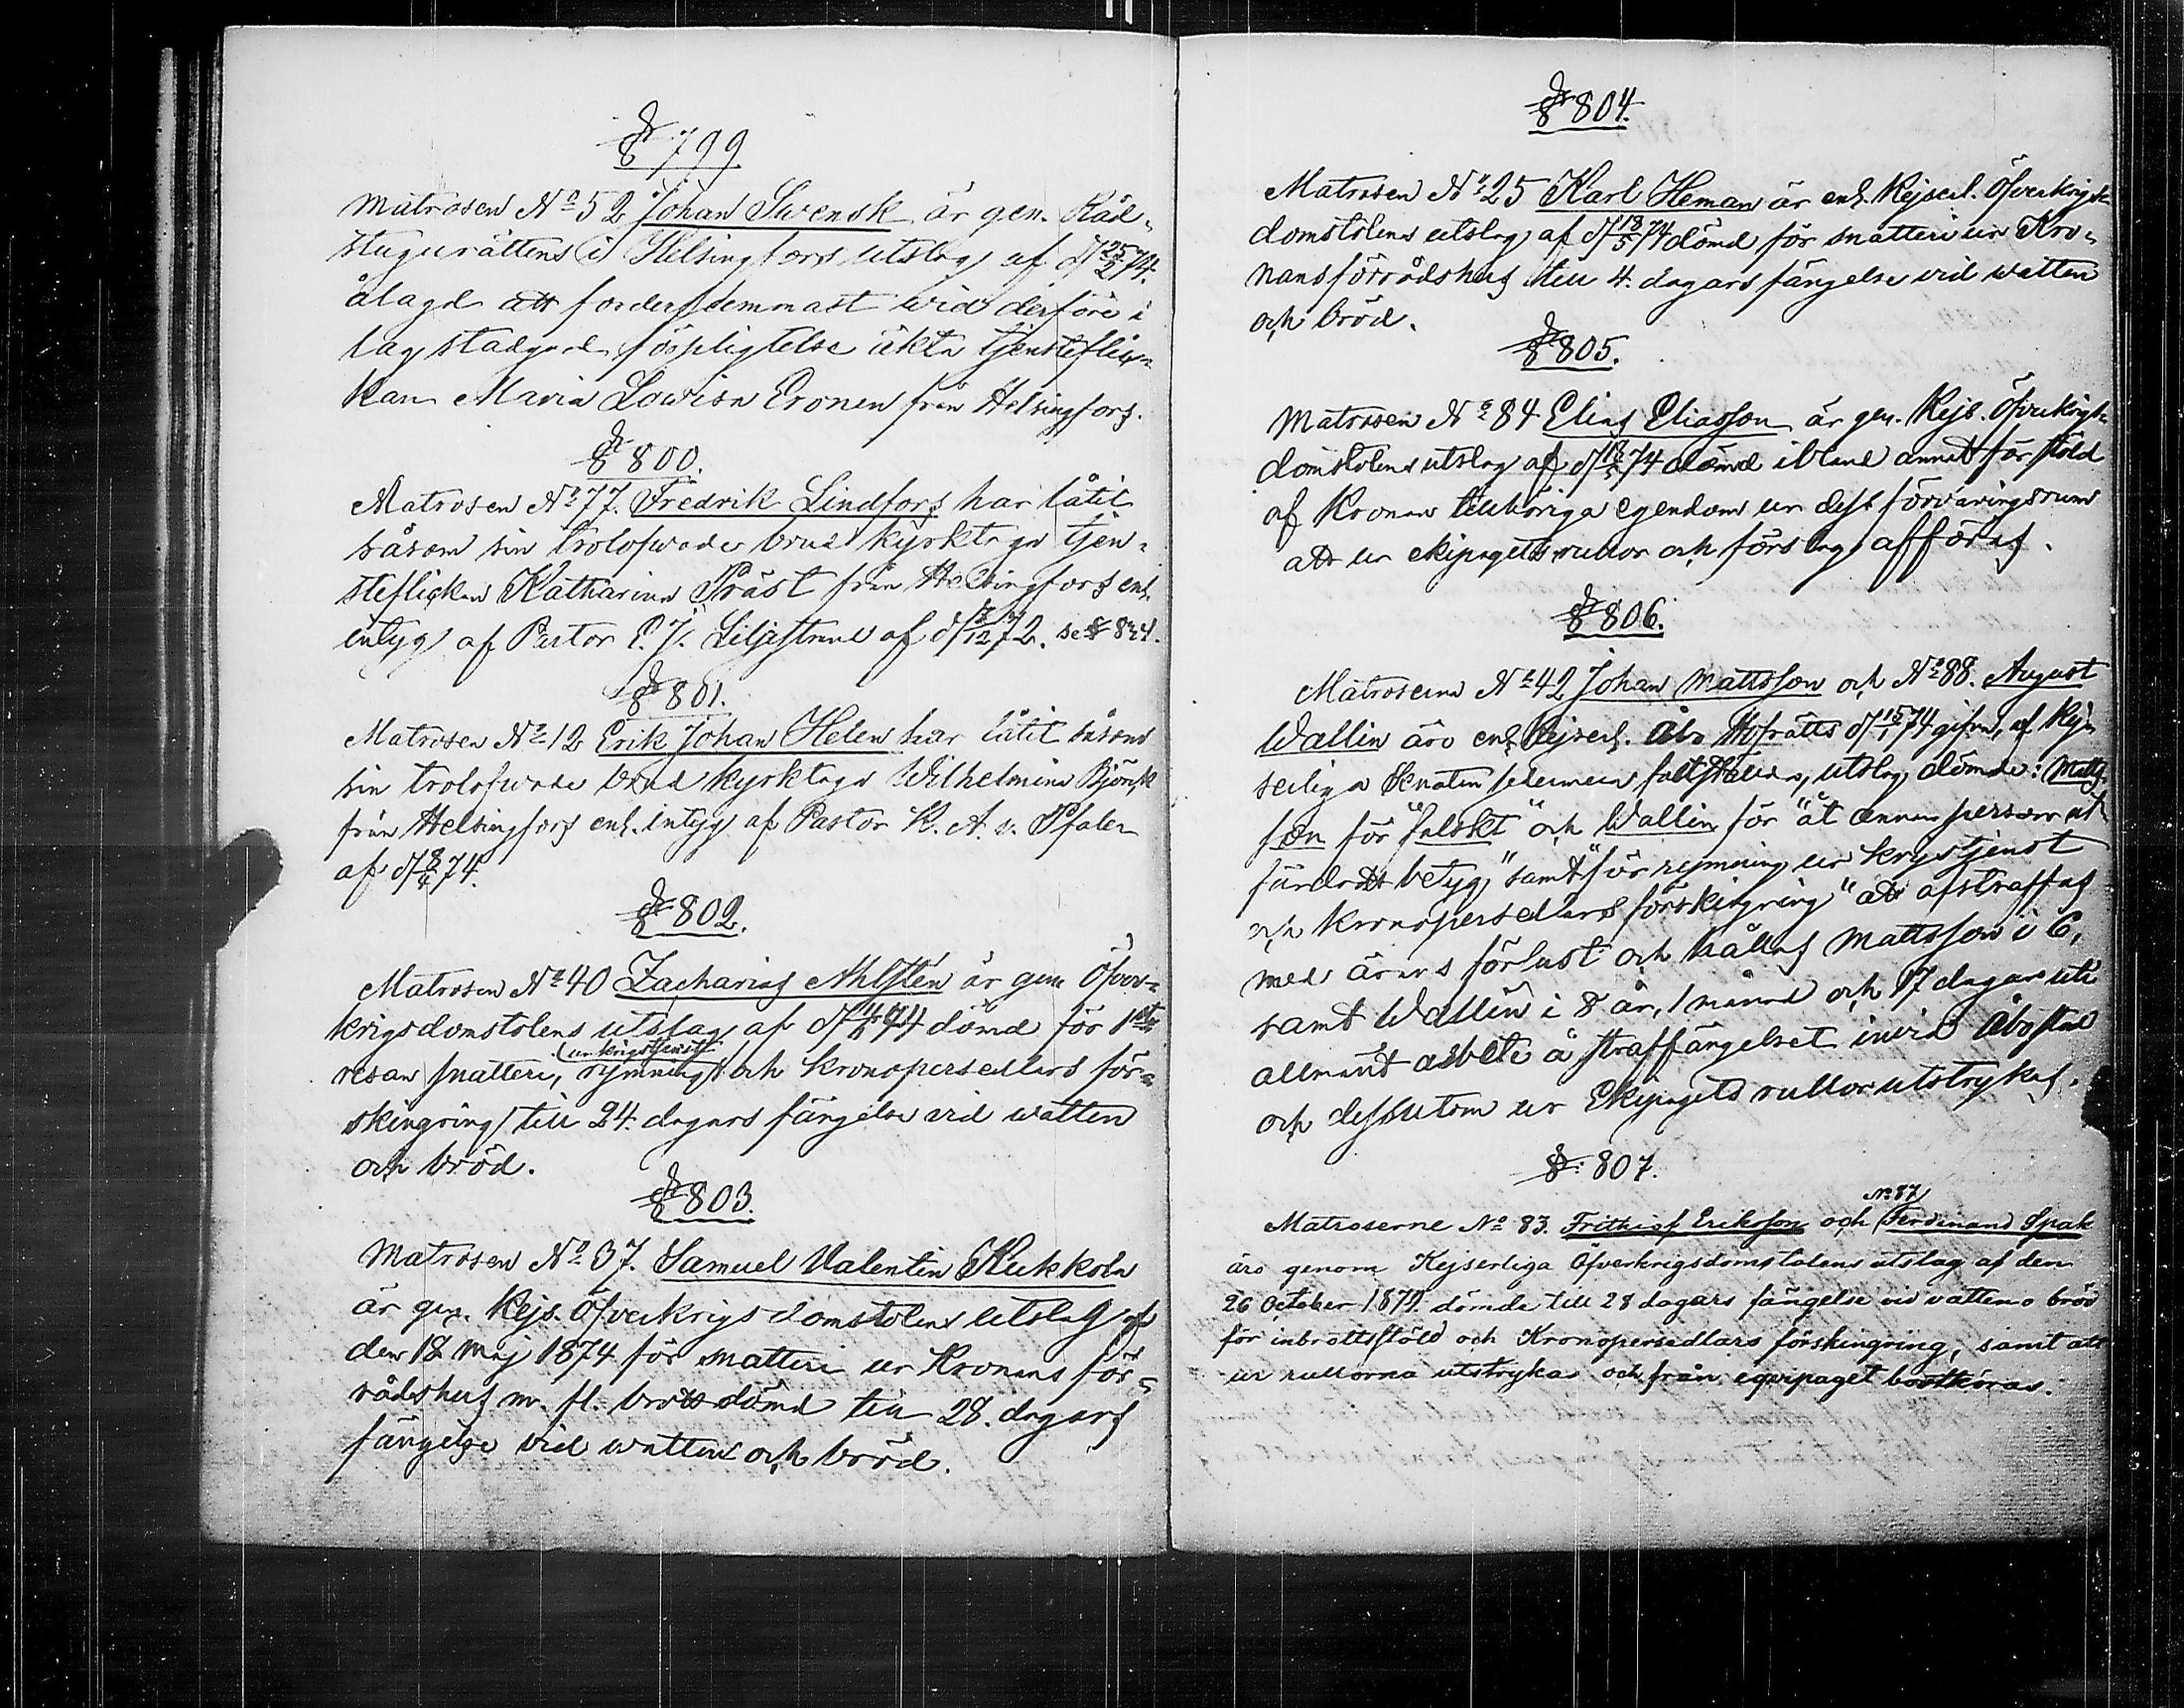 § 799
Matrosen No 52 Johan Swensk är gen. Råd-
stugurättens i Helsingfors utslag af d 25/2 74.
ålagd att fordersammast wid derföre i
lag stadgad förpligtelse äkta tjensteflic-
kan Maria Lowisa Eronen från Helsingfors.
§ 800.
Matrosen No 77. Fredrik Lindfors har låtit
såsom sin trolofwade brud kyrktaga tjen-
steflickan Katharina Präst från Helsingfors enl.
intyg af Pastor E. J. Liljestrand af d /12 72. se §
§ 801.
Matrosen No 12 Erik Johan Helen har låtit såsom
sin trolofwade brud kyrktaga Wilhelmina Björck
från Helsingfors enl. intyg af Pastor K. A. v. Pfaler
af d 8/4 74.
§ 802.
Matrosen No 40 Zacharias Ahlsten är gen. Öfver-
krigsdomstolens utslag af d 74 dömd för 1sta
(ur krigstjenst)
resan snatteri, rymning och kronopersedlars för-
skingring till 24 dagars fängelse vid watten
och bröd.
§ 803.
Matrosen No 37. Samuel Valentin Kukkola
är gen. Kejs. Öfverkrigsdomstolens utslag af
den 18 Maj 1874 för snatteri ur Kronans för-
rådshus m. fl. brott dömd till 28. dagars
fängelse vid watten och bröd.
§ 804.
Matrosen No 25 Karl Heman är enl. Kejserl. Öfverkrigs-
domstolens utslag af d 18/5 74 dömd för snatteri ur Kro-
nans förrådshus till 4. dagars fängelse vid watten
och bröd.
§ 805.
Matrosen No 84 Elias Eliasson är gen. Kejs. Öfverkrigs-
domstolens utslag af d 18/5 74 dömd ibland annat för stöld
af Kronan tillhöriga egendom ur dess förvaringsrum
att ur ekipagets rullor och förslag afföras.
§ 806.
Matroserna No 42 Johan Mattsson och No 88. August
Wallin äro enl. Kejserl. Åbo Hofrätts d 15/1 74 gifna, af Kej-
serliga Senaten fastställda, utslag dömde: Matts-
son för "falskt" och Wallin för "åt annan person ut-
färdadt betyg," samt "för rymning ur krigstjenst
och kronopersedlars förskingring" att afstraffas
med ärans förlust och hållas Mattsson i 6,
samt Wallin i 8 år, 1 månad och 17 dagar uti
allmänt arbete å straffängelset invid Åbo stad
och dessutom ur Ekipagets rullor utstrykas.
§ 807.
No 87
Matroserne No 83. Frithiof Eriksson och Ferdinand Spak
äro genom Kejserliga Öfverkrigsdomstolens utslag af den
26 October 1874. dömde till 28 dagars fängelse vid vatten o bröd
för inbrottsstöld och Kronopersedlars förskingring, samt att
ur rullorna utstrykas och från equipaget bortköras.